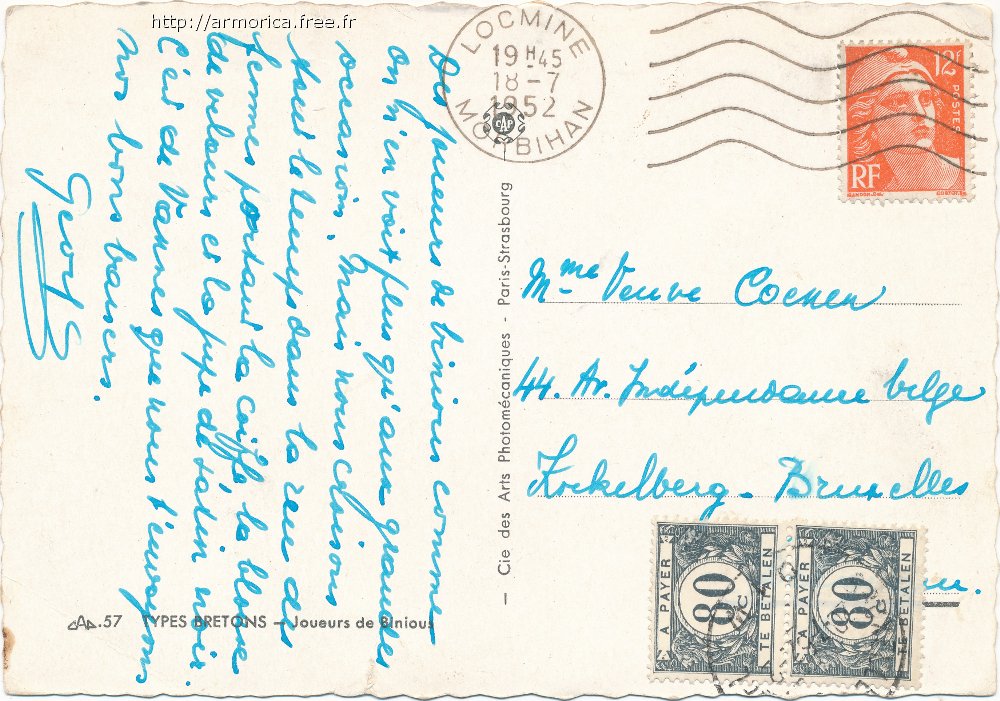 http://armorica.free.fr
LOCMINE
19H45
18-7
1952
MORBIHAN
CAP
12F
POSTES
RF
GANDON
Des joueurs de binious comme
on n'en voit plus qu'aux grandes
occasions. Mais nous croisons
tout le temps dans la rue des
femmes portant la coiffe la blouse
de velours et la jupe de satin noir.
C'est de Vannes que nous t'envoyons
nos bons baisers.
— Cie des Arts Photomécaniques - Paris-Strasbourg
Mme Veuve Coenen
44. Av. Indépendance belge
Koekelberg - Bruxelles
A PAYER
80
TE BETALEN
A PAYER
80
TE BETALEN
CAP.57 TYPES BRETONS — Joueurs de Binious